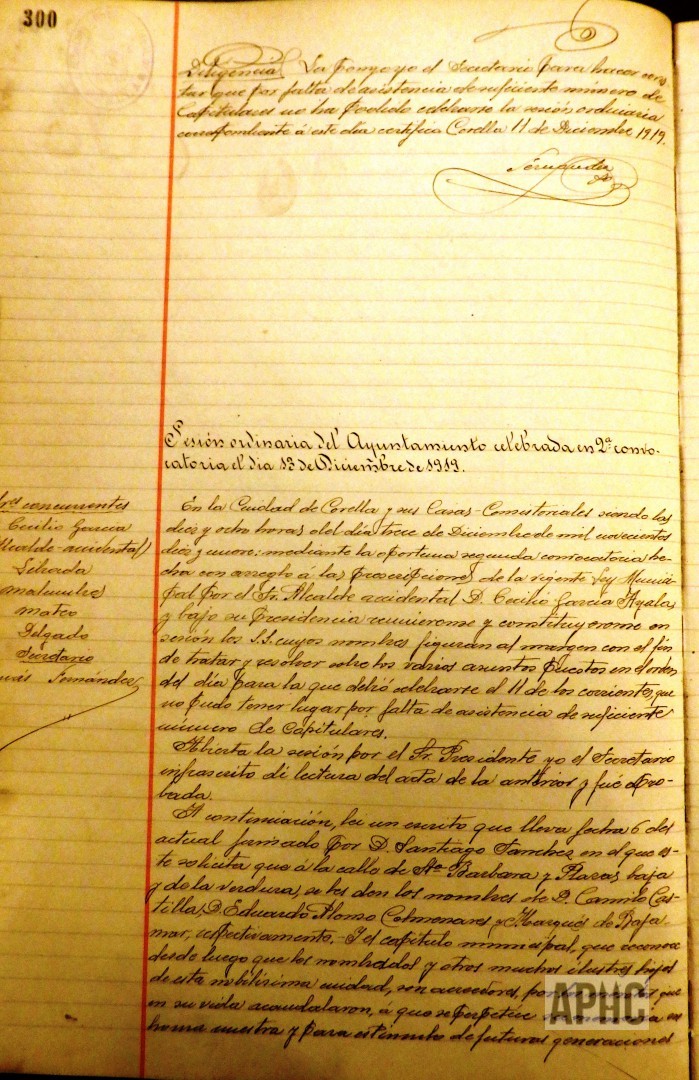 300
Diligencia. La pongo yo el Secretario para hacer cons
tar que por falta de asistencia de suficiente número de
Capitulares no ha podido celebrarse la sesión ordinaria
correspondiente á este dia certifico Corella 11 de Diciembre 1919.
Sesión ordinaria del Ayuntamiento celebrada en 2ª convo-
catoria el dia 13 de Diciembre de 1919.
Sres concurrentes
Cecilio Garcia
Alcalde-accidental
Mateo
Delgado
Secretario
Fernández
En la Ciudad de Corella y sus Casas-Consistoriales siendo las
diez y ocho horas del dia trece de Diciembre de mil novecientos
diez y nueve: mediante la oportuna segunda convocatoria he-
cha con arreglo á las prescripciones de la vigente Ley Munici-
pal por el Sr. Alcalde accidental D. Cecilio Garcia Ayala
y bajo su presidencia reunieronse y constituyeronse en
sesión los S.S. cuyos nombres figuran al margen con el fin
de tratar y resolver sobre los varios asuntos puestos en el orden
del dia para la que debió celebrarse el 11 de los corrientes, que
no pudo tener lugar por falta de asistencia de suficiente
número de Capitulares.
Abierta la sesión por el Sr. Presidente yo el Secretario
infrascrito di lectura del acta de la anterior y fué apro-
bada.
A continuación, lei un escrito que lleva fecha 6 del
actual firmado por D. Santiago Sanchez en el que es-
te solicita que á la calle de Sta Barbara y Plazas baja
y de la Verdura, se les den los nombres de D. Camilo Cas-
tilla, D. Eduardo Alonso Colmenares y Marqués de Baja-
mar, respectivamente. Y el capitulo municipal, que reconoce
desde luego que los nombrados y otros muchos ilustres hijos
de esta nobilísima ciudad, son acreedores, por
en su vida acaudalaron, á que se perpetúe en
honra nuestra y para estimulo de futuras generaciones
APHC